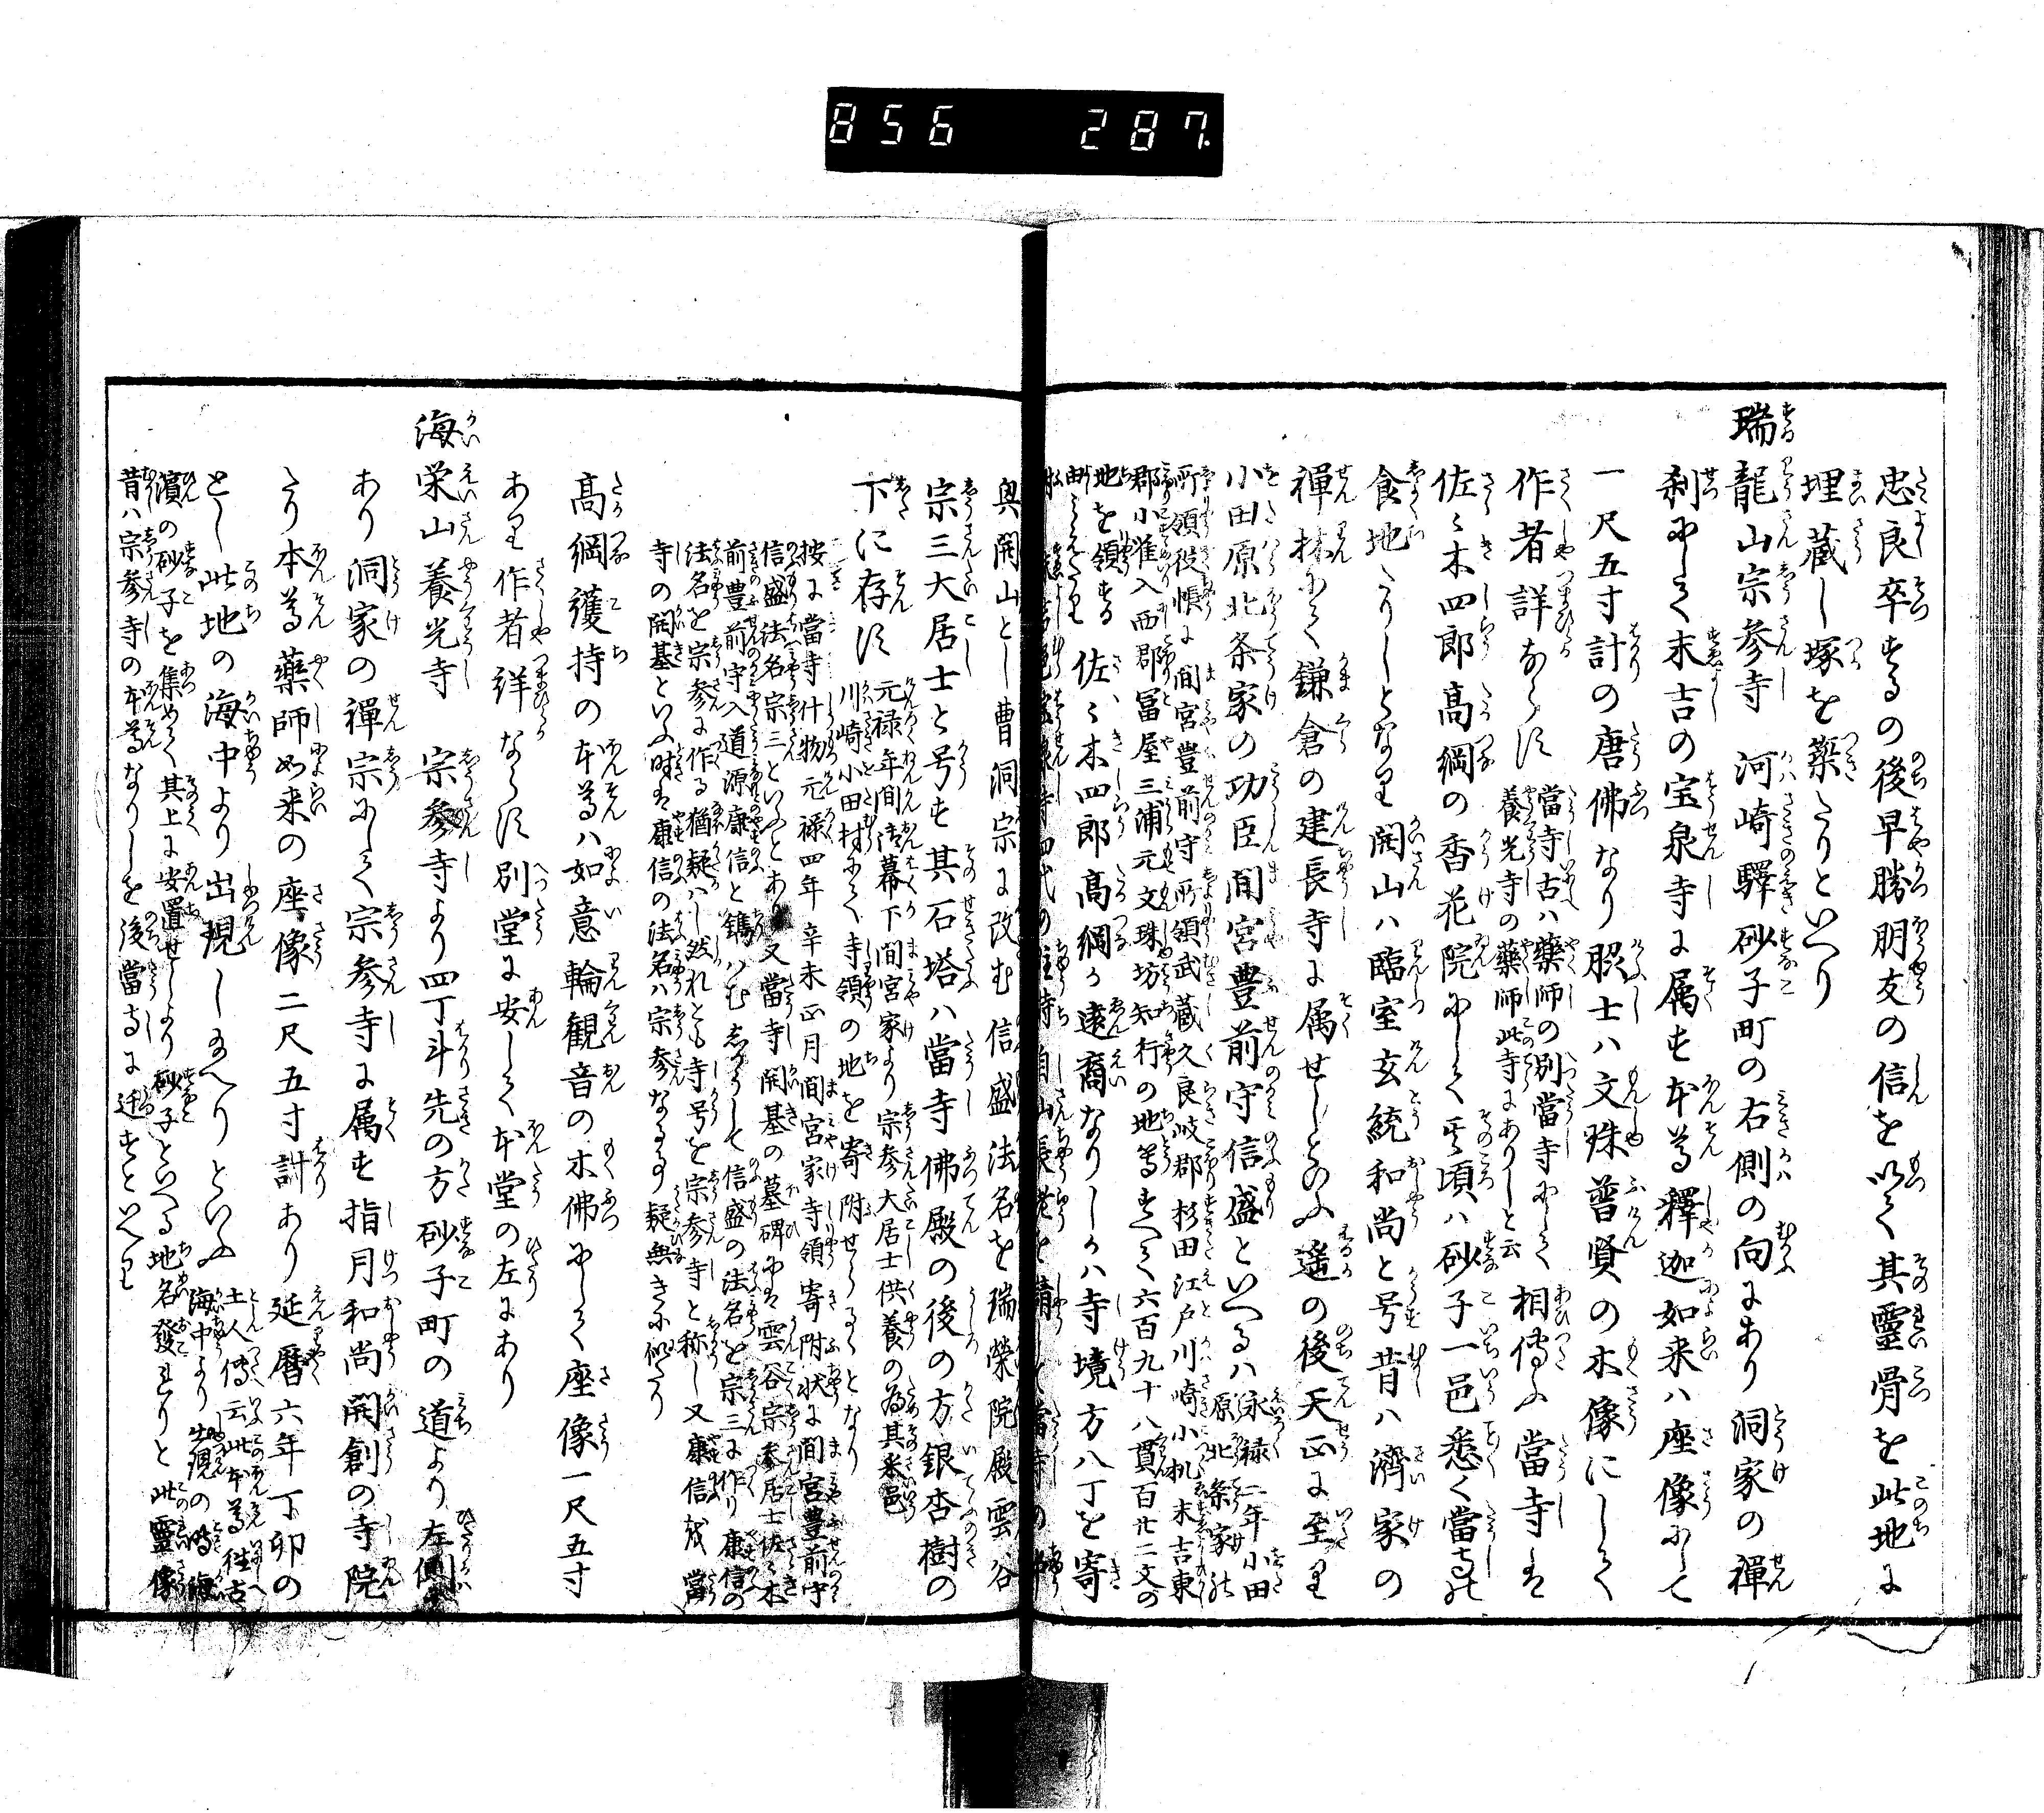 856 287.
忠良卒するの後早勝朋友の信を以て其靈骨を此地に
埋蔵し塚を築たりといへり
瑞龍山宗参寺 河崎驛砂子町の右側の向にあり洞家の禅
刹にして末吉の宝泉寺に属す本尊釋迦如来ハ座像にして
一尺五寸計の唐佛なり脇士ハ文殊普賢の木像にして
作者詳ならす 當寺古ハ藥師の別當寺にて
養光寺の藥師此寺にありしと云
相傳ふ當寺は
佐々木四郎高綱の香花院にして其頃ハ砂子一邑悉く當寺の
食地たりしとなり開山ハ臨室玄統和尚と号昔ハ濟家の
禅林にて鎌倉の建長寺に属せしとのふ遥の後天正に至り
小田原北条家の功臣間宮豊前守信盛といへるハ 永禄二年小田
原北条家の
所領役帳に間宮豊前守所領武蔵久良岐郡杉田江戸川崎小机末吉東
郡小雀入西郡冨屋三浦元文珠坊知行の地等すへて六百九十八貫百廿二文の
地を領する
由しるせり
佐々木四郎高綱か遠裔なりしかハ寺境方八丁を寄
四代の住持自山長老を請して當寺の
與開山とし曹洞宗に改む信盛法名を瑞榮院殿雲谷
宗三大居士と号す其石塔ハ當寺佛殿の後の方銀杏樹の
下に存す 元禄年間幕下間宮家より宗参大居士供養の為其釆邑
川崎小田村にて寺領の地を寄附せらるゝとなり
按に當寺什物元禄四年辛未正月間宮家寺領寄附状に間宮豊前守
信盛法名宗三といふとあり又當寺開基の墓碑には雲谷宗参居士佐々木
前豊前守入道源康信と鐫はむしかして信盛の法名を宗三に作り康信の
法名を宗参に作る猶疑ハし然れとも寺号を宗参寺と称し又康信を當
寺の開基といふ時は康信の法名ハ宗参なる事疑無きに似たり
高綱護持の本尊ハ如意輪観音の木佛にして座像一尺五寸
あり作者詳ならす別堂に安して本堂の左にあり
海栄山養光寺 宗参寺より四丁斗先の方砂子町の道より左側に
あり洞家の禅宗にして宗参寺に属す指月和尚開創の寺院
たり本尊藥師如来の座像二尺五寸計あり延暦六年丁卯の
とし此地の海中より出現し玉へりといふ 土人傳云此本尊往古
海中より出現の時海
濱の砂子を集めて其上に安置せしより砂子といへる地名發れりと此靈像
昔ハ宗参寺の本尊なりしを後當寺に迁すといへり